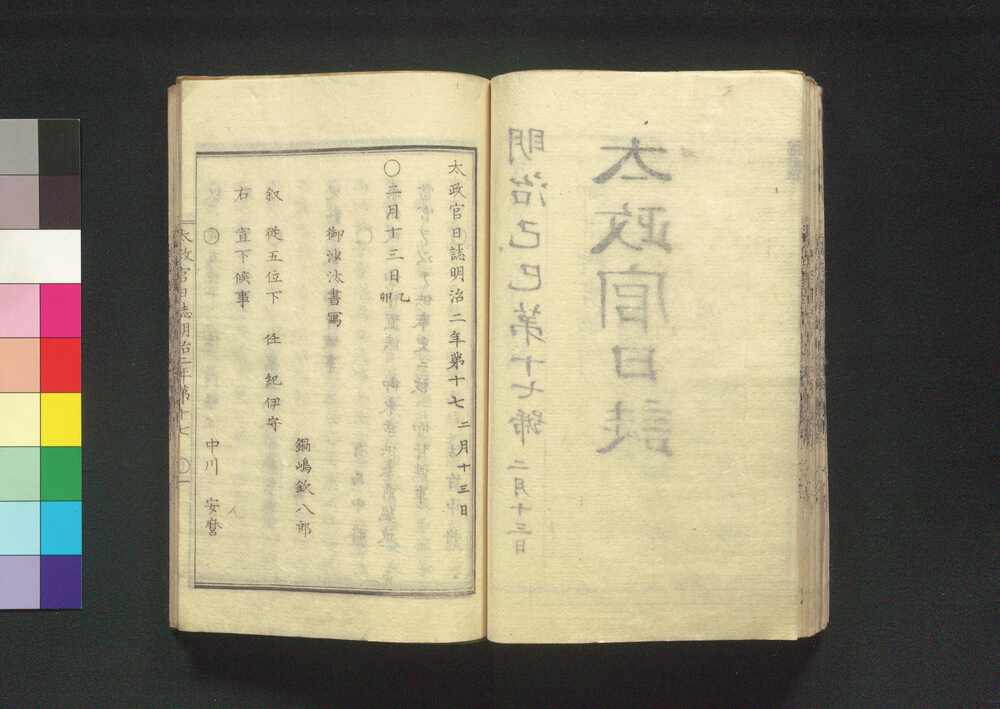 太政官日誌
明治己巳第十七號 二月十三日
太政官日誌明治二年第十七 二月十三日
〇二月十三日乙卯
御沙汰書寫
鍋嶋欽八郎
叙 從五位下 任 紀伊守
右 宣下候事
〇
中川 安麿
太政官日誌明治二年第十七 〇一